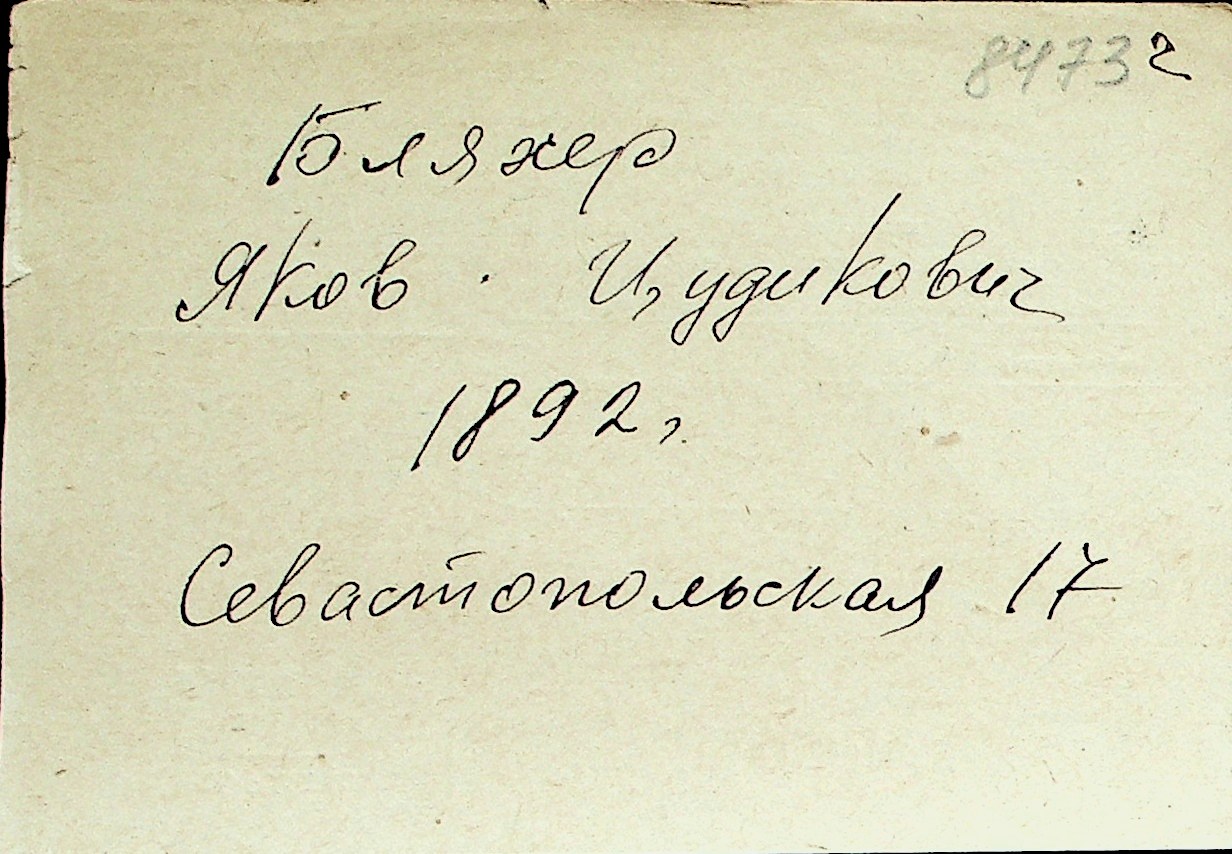 8473 ч
Бляхер
Яков Цудикович
1892г
Севастопольская 17